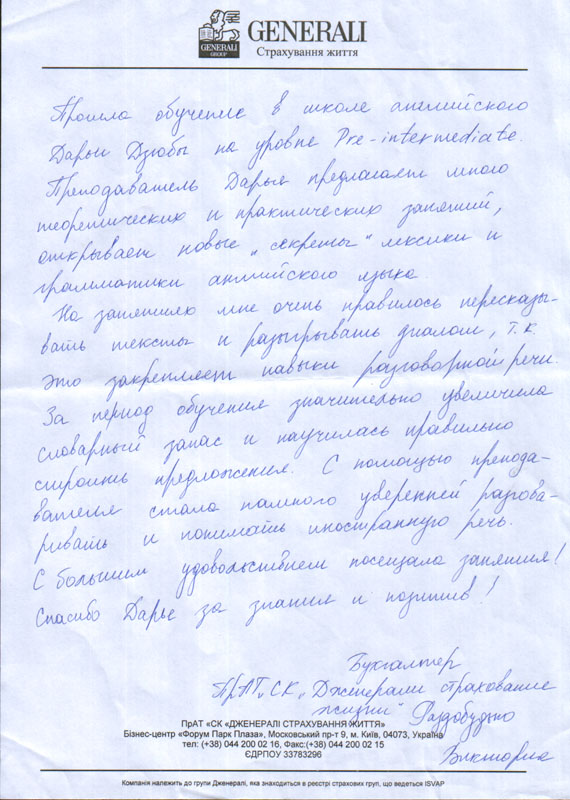 GENERALI
GENERALI
GROUP
Страхування життя
Прошла обучение в школе английского
Дарьи Дзюбы на уровне Pre-intermediate.
Преподаватель Дарья предлагает много
теоретических и практических занятий,
открывает новые „секреты“ лексики и
грамматики английского языка.
На занятиях мне очень нравилось пересказы-
вать тексты и разыгрывать диалоги, т.к.
это закрепляет навыки разговорной речи.
За период обучения значительно увеличила
словарный запас и научилась правильно
строить предложения. С помощью препода-
вателя стала намного уверенней разгова-
ривать и понимать иностранную речь.
С большим удовольствием посещала занятия!
Спасибо Дарье за знания и позитив!
Бухгалтер
ПрАТ „СК „Дженерали страхование
жизни“ Раздобудько
Виктория
ПрАТ «СК «ДЖЕНЕРАЛІ СТРАХУВАННЯ ЖИТТЯ»
Бізнес-центр «Форум Парк Плаза», Московський пр-т 9, м. Київ, 04073, Україна
тел: (+38) 044 200 02 16, Факс:(+38) 044 200 02 15
ЄДРПОУ 33783296
Компанія належить до групи Дженералі, яка знаходиться в реєстрі страхових груп, що ведеться ISVAP